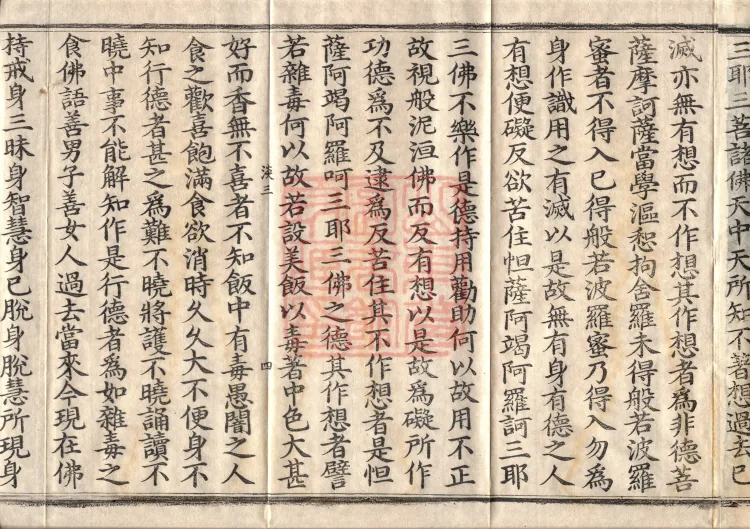 三耶三菩諸佛天中天所知不著想過去已
滅亦無有想而不作想其作想者為非德菩
薩摩訶薩當學漚惒拘舍羅未得般若波羅
蜜者不得入已得般若波羅蜜乃得入勿為
身作識用之有滅以是故無有身有德之人
有想便礙反欲苦住怛薩阿竭阿羅訶三耶
三佛不樂作是德持用勸助何以故用不正
故視般泥洹佛而反有想以是故為礙所作
功德為不及逮為反苦住其不作想者是怛
薩阿竭阿羅呵三耶三佛之德其作想者譬
若雜毒何以故若設美飯以毒著中色大甚
淡三 四
好而香無不喜者不知飯中有毒愚闇之人
食之歡喜飽滿食欲消時久久大不便身不
知行德者甚之為難不曉將護不曉誦讀不
曉中事不能解知作是行德者為如雜毒之
食佛語善男子善女人過去當來今現在佛
持戒身三昧身智慧身已脫身脫慧所現身